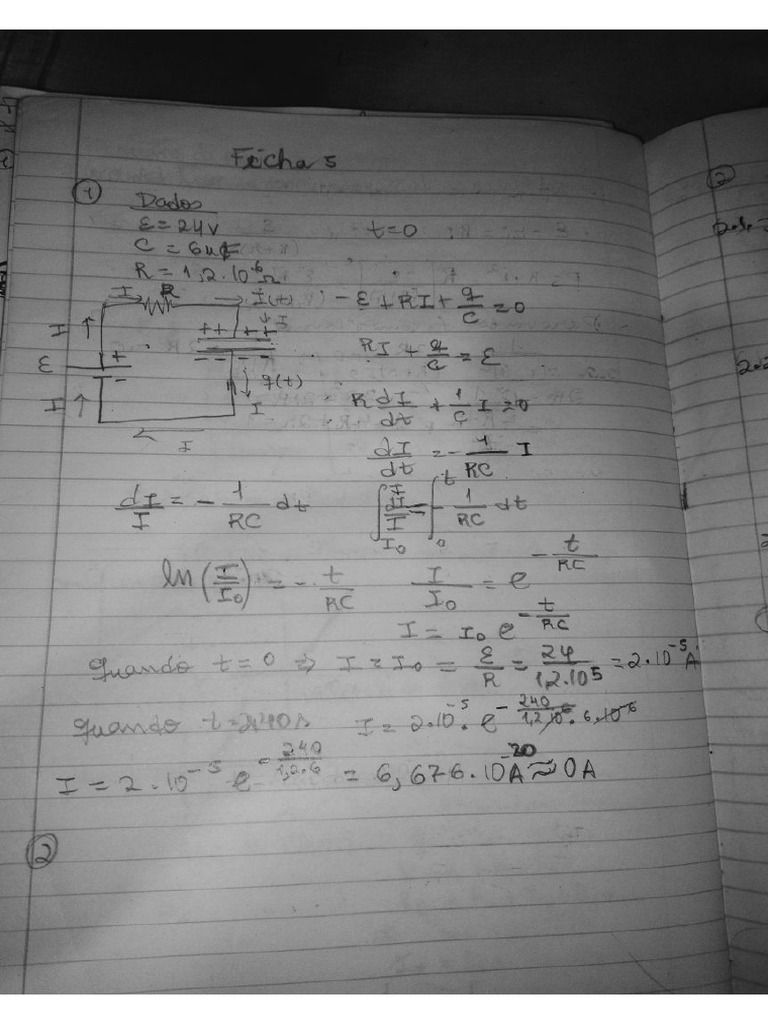 Ficha 5
① Dados
ε = 24V
t=0
C = 6µF
R = 1,2.10⁶Ω
I R i(t) - ε + RI + q/C = 0
I ++ ++ I
RI + q/C = ε
ε + -
-- --
q(t)
I I
R dI/dt + 1/C I = 0
I
dI/dt = - 1/RC I
dI/I = - 1/RC dt ∫_{I₀}^{I} dI/I = ∫_{0}^{t} - 1/RC dt
ln(I/I₀) = - t/RC I/I₀ = e^{-t/RC}
I = I₀ e^{-t/RC}
Quando t = 0 ⇒ I = I₀ = ε/R = 24/1,2.10⁵ = 2.10⁻⁵A
Quando t=240s I = 2.10⁻⁵. e^{- 240/1,2.10⁶. 6.10⁻⁶}
I = 2.10⁻⁵ e^{-240/1,2.6} = 6,676.10⁻²⁰A ≈ 0A
②
②